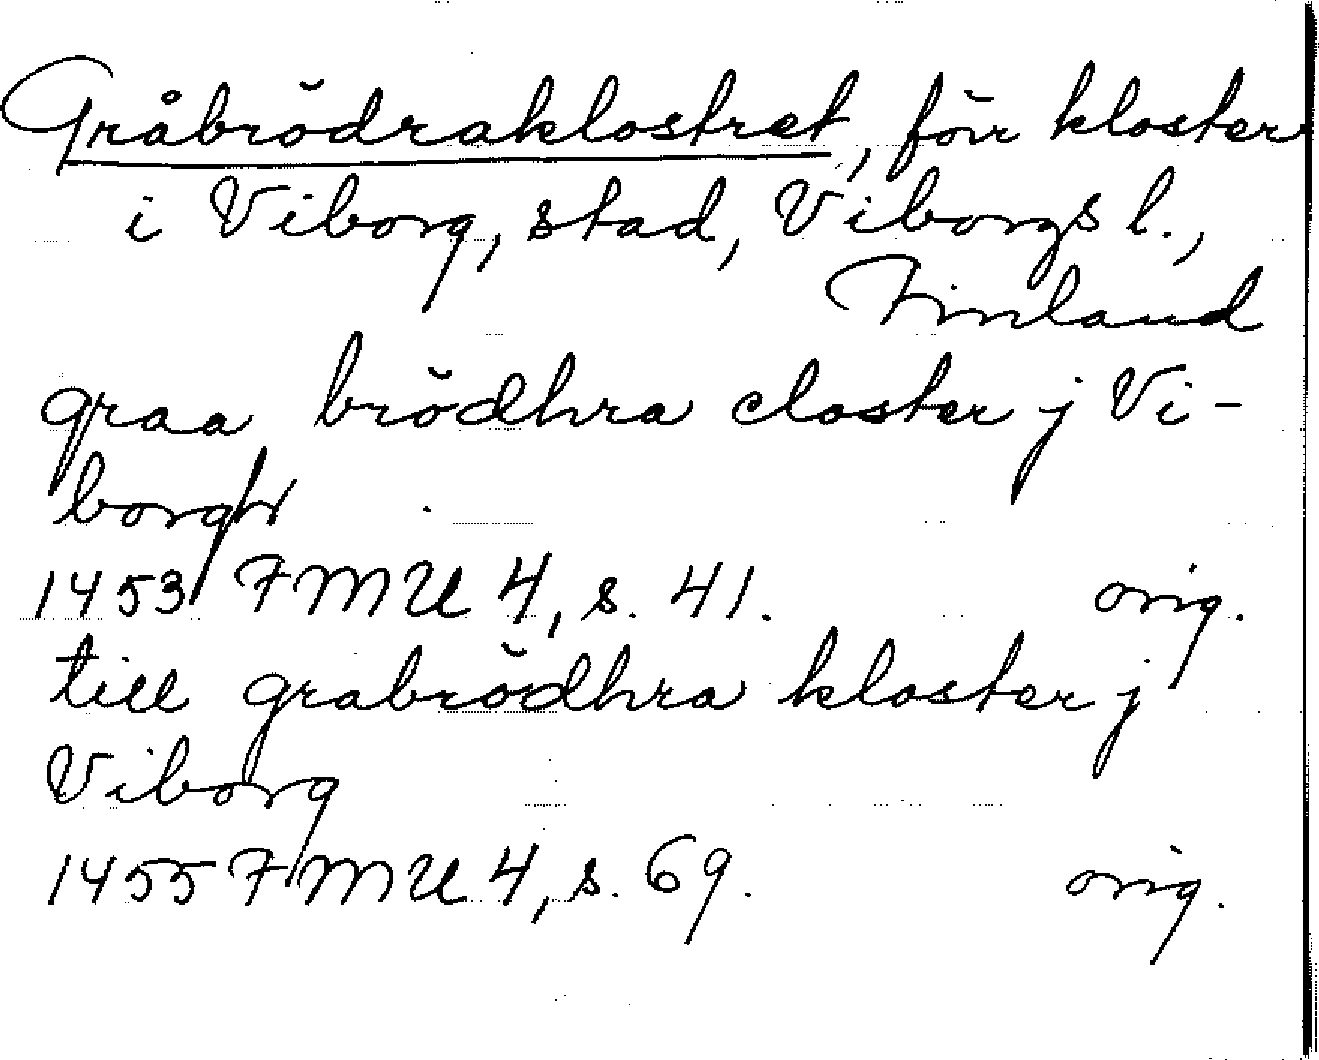 Gråbrödraklostret, förr kloster
i Viborg, stad, Viborgs l.,
Finland
graa brödhra closter j Vi-
borgh
1453 FMU 4, s. 41. orig.
till grabrödhra kloster j
Viborg
1455 FMU 4, s. 69. orig.